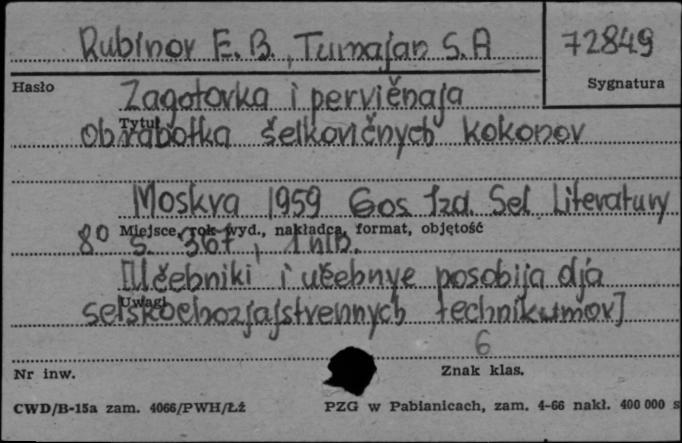 Rubinov E. B., Tumajan S. A
72849
Hasło
Sygnatura
Zagotovka i pervičnaja
Tytuł
obrabotka šelkovičnych kokonov
Moskva 1959 Gos Izd. Sel Literatury
Miejsce, rok wyd., nakładca, format, objętość
8° s. 367, 1 nlb.
[Učebniki i učebnye posobija dja
Uwagi
selskochozjajstvennych technikumov]
6
Nr inw.
Znak klas.
CWD/B-15a zam. 4066/PWH/Łź
PZG w Pabianicach, zam. 4-66 nakł. 400 000 s